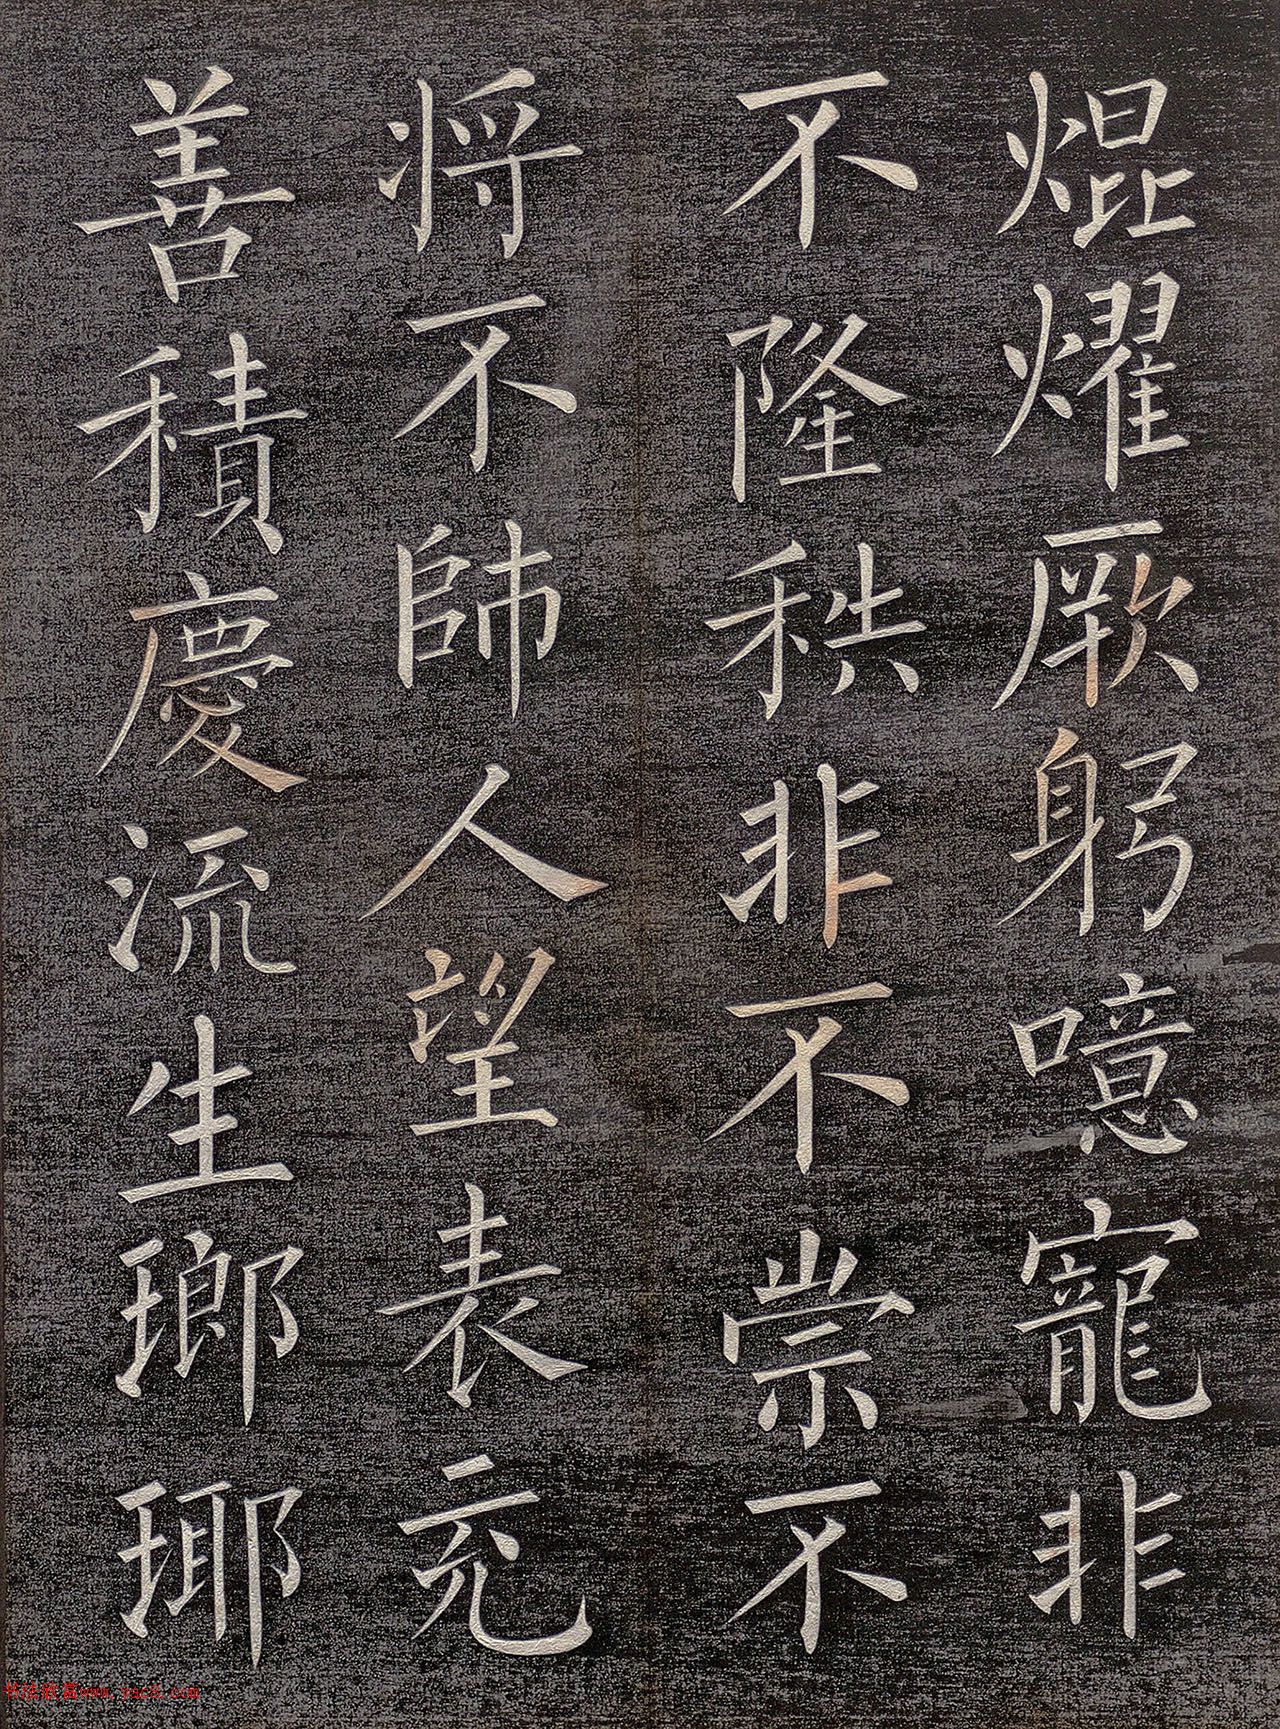 焜耀厥躬噫寵非
不隆秩非不崇不
将不師人望表充
善積慶流生瑯瑘
书法欣赏www.yac8.com